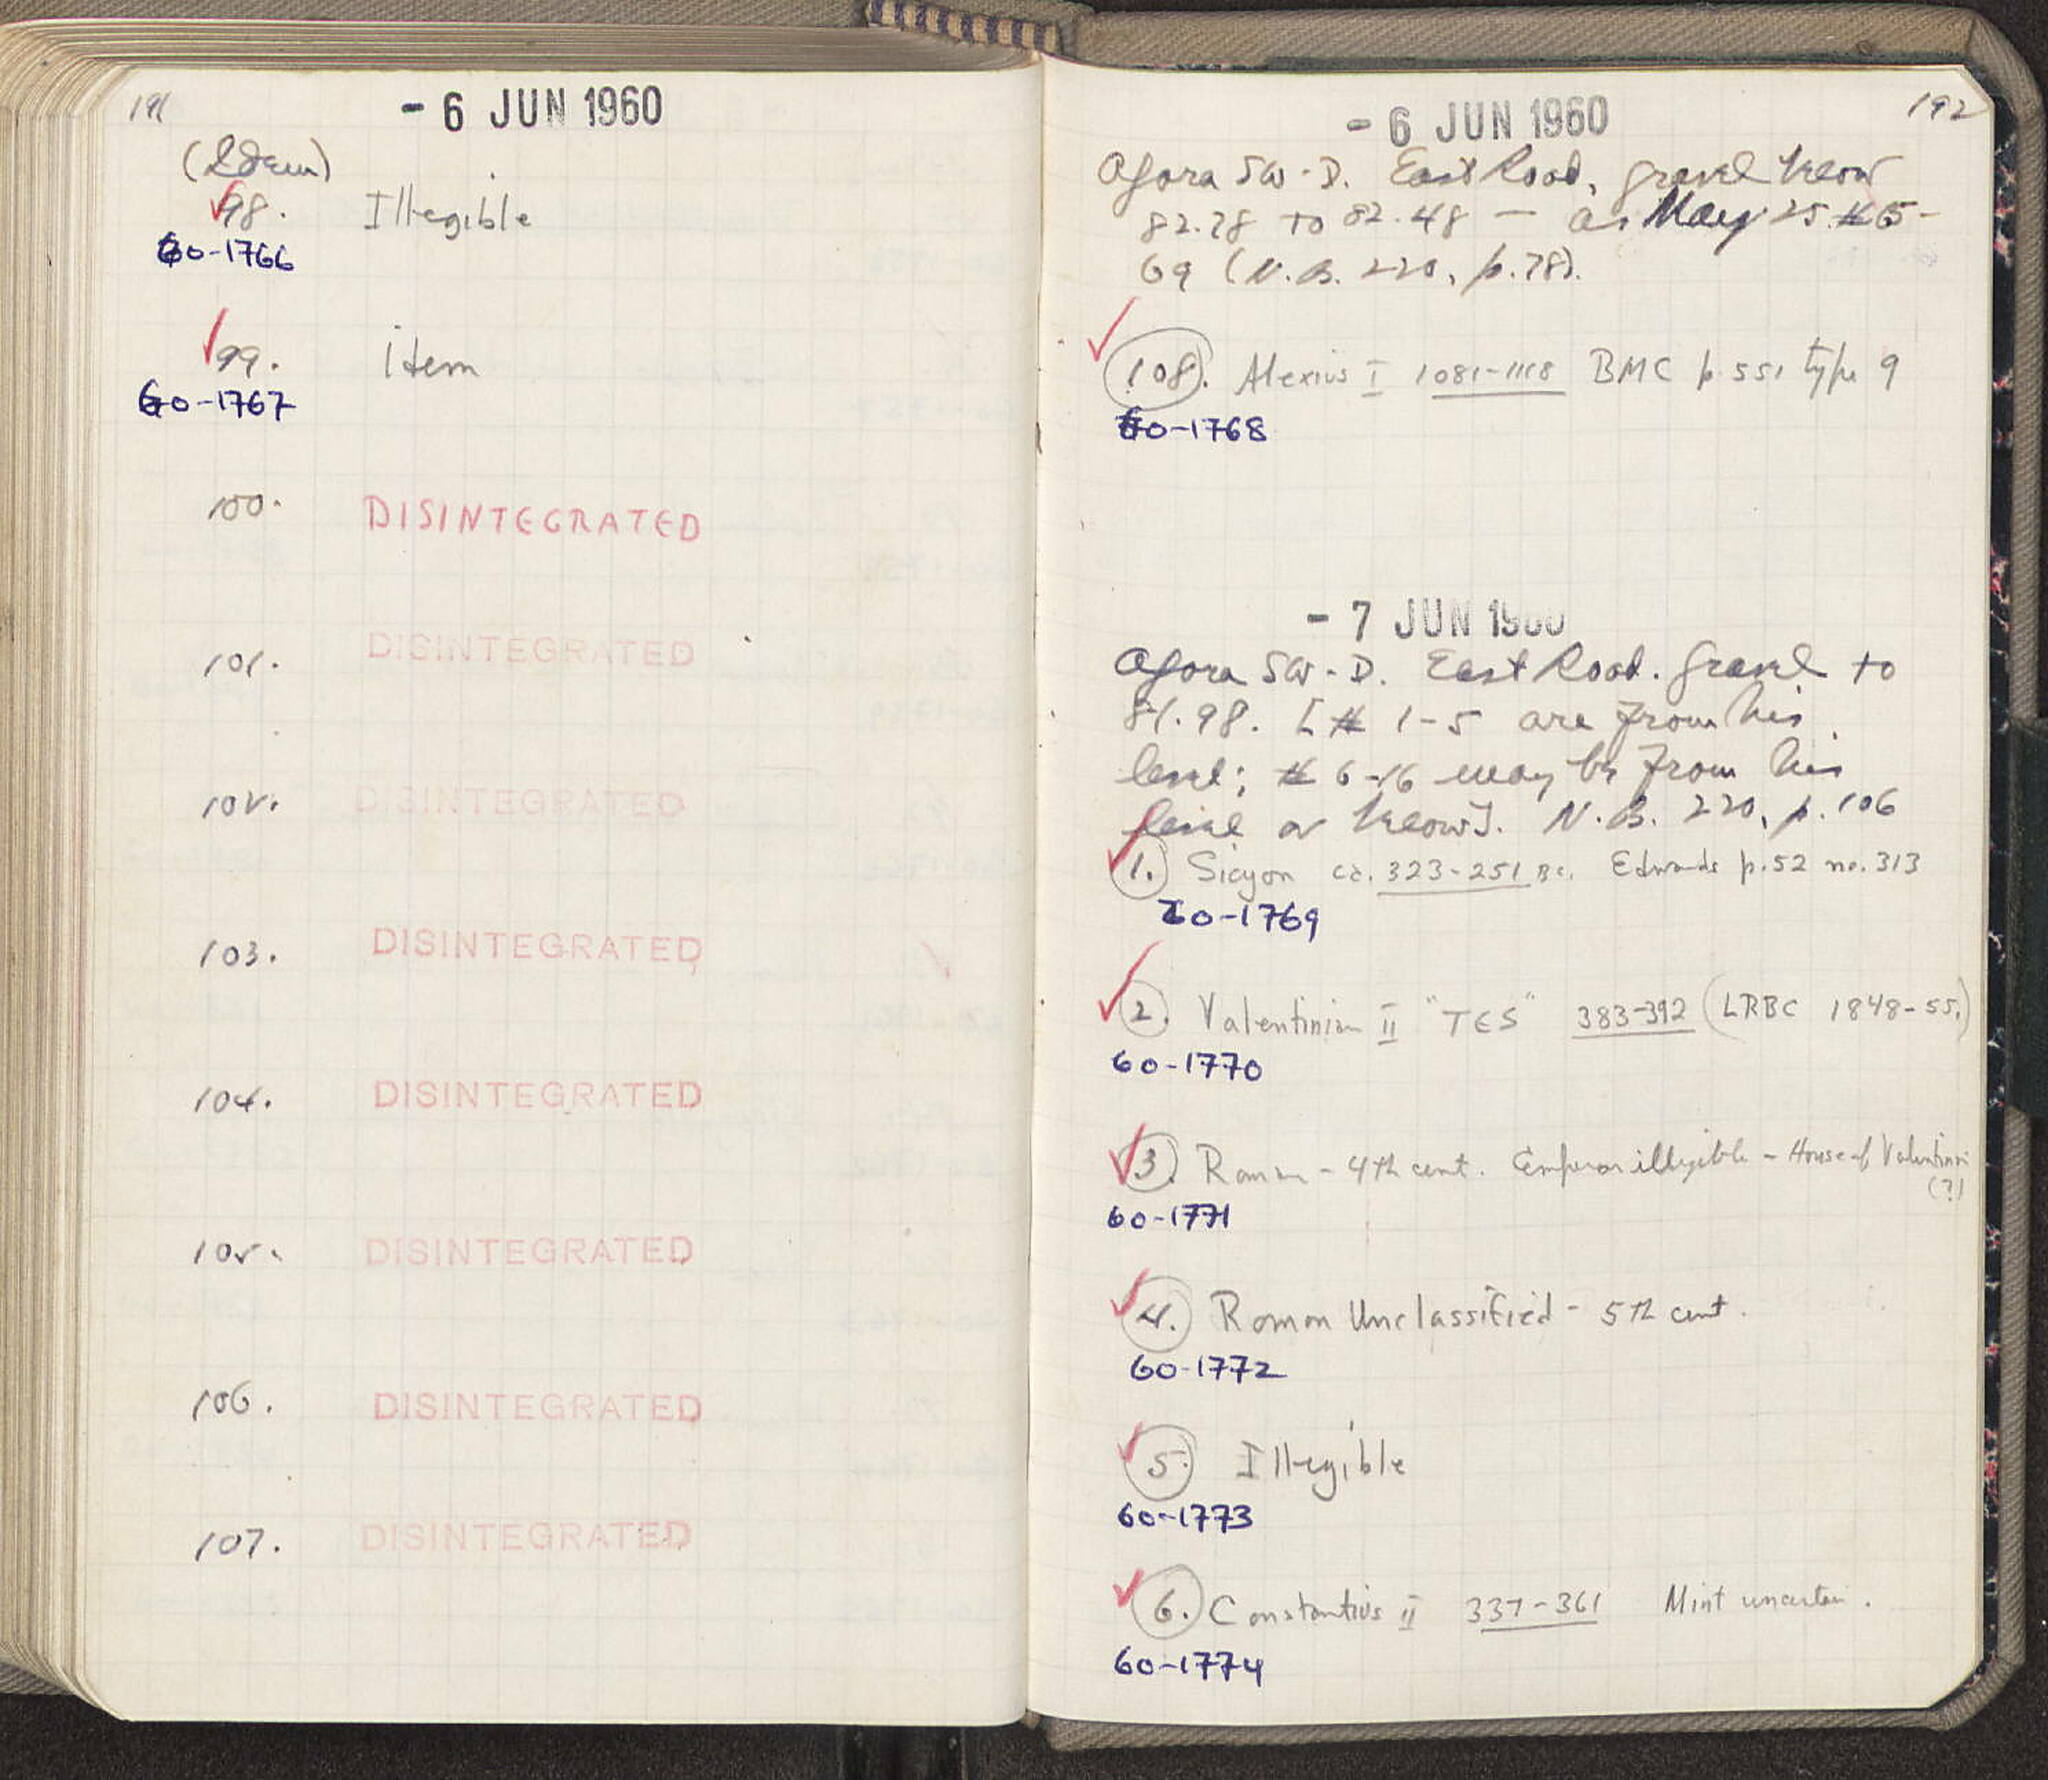 191
- 6 JUN 1960
(Idem)
98. Illegible
60-1766
99. item
60-1767
100. DISINTEGRATED
101. DISINTEGRATED
102. DISINTEGRATED
103. DISINTEGRATED
104. DISINTEGRATED
105. DISINTEGRATED
106. DISINTEGRATED
107. DISINTEGRATED
192
- 6 JUN 1960
Agora SW-D. East Road, gravel below
82.78 to 82.48 — as May 25 #65-
69 (N.B. 220, p.78).
108. Alexius I 1081-1118 BMC p.551 type 9
60-1768
- 7 JUN 1960
Agora SW-D. East Road. Gravel to
81.98. [# 1-5 are from this
level; # 6-16 may be from this
level or below]. N.B. 220, p.106
1. Sicyon ca. 323-251 BC. Edwards p.52 no.313
60-1769
2. Valentinian II "TES" 383-392 (LRBC 1848-55.)
60-1770
3. Roman - 4th cent. Emperor illegible - House of Valentinian
(?)
60-1771
4. Roman Unclassified - 5th cent.
60-1772
5. Illegible
60-1773
6. Constantius II 337-361 Mint uncertain.
60-1774